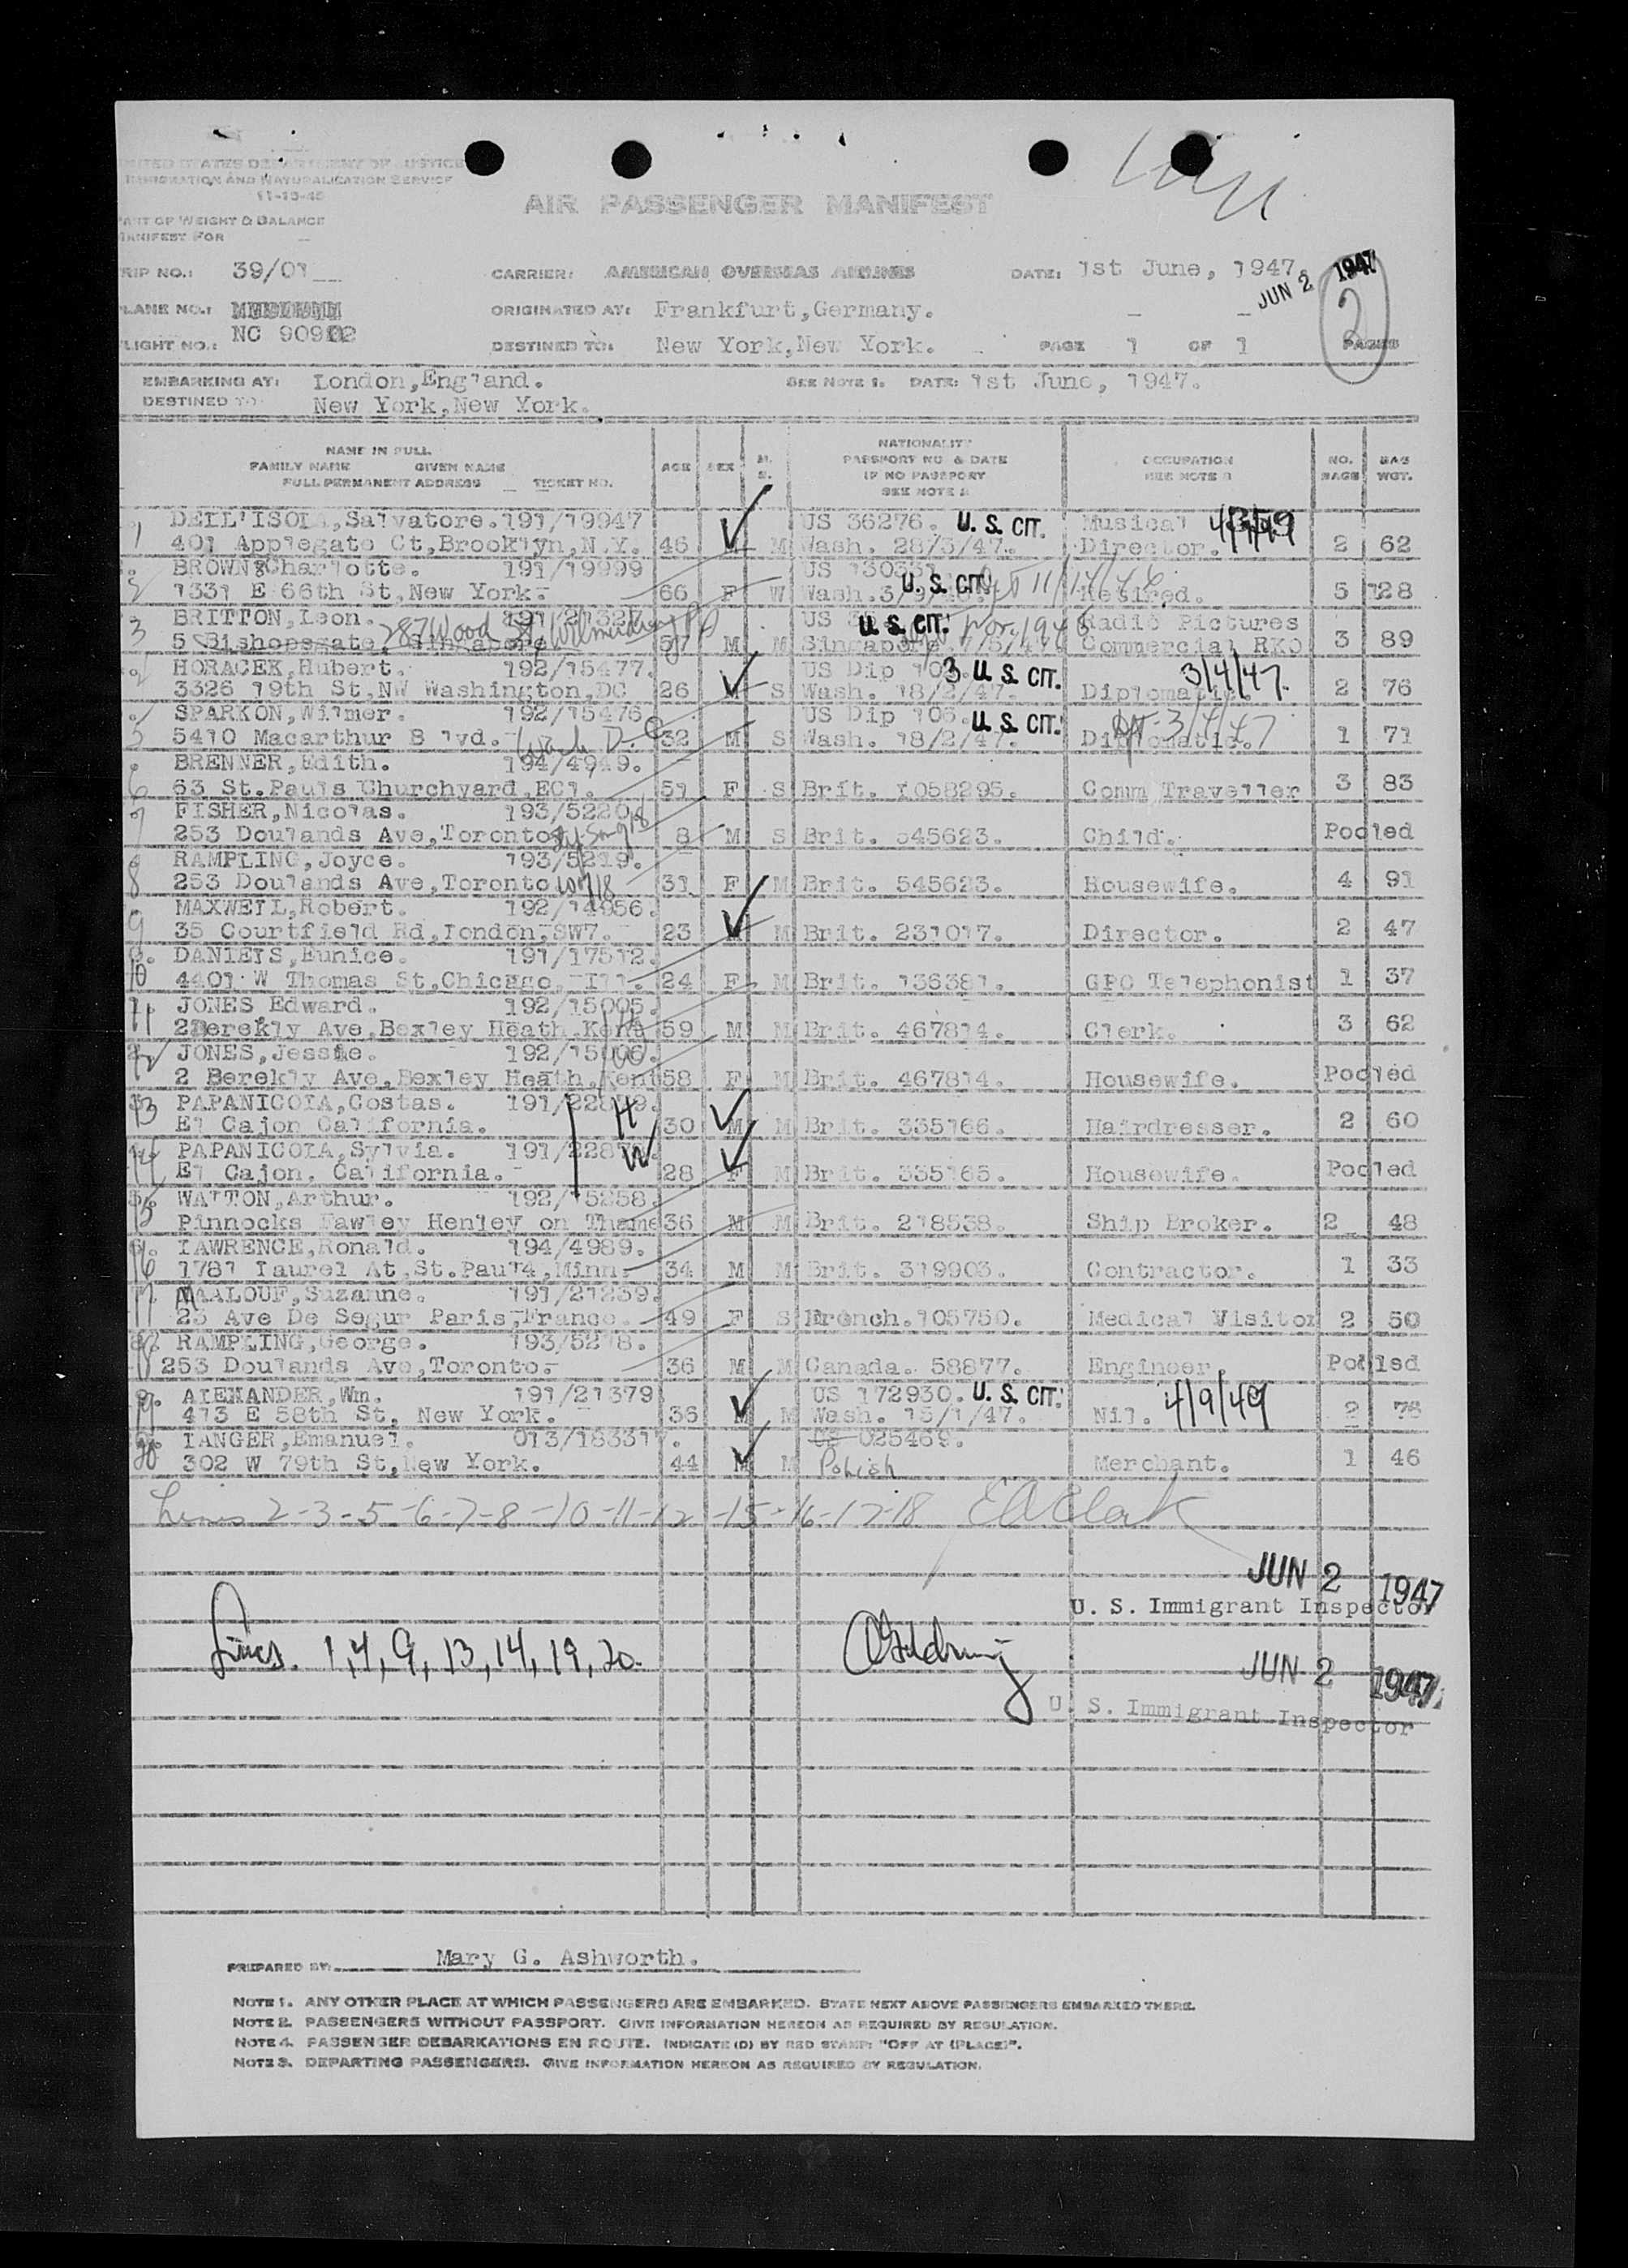 UNITED STATES DEPARTMENT OF JUSTICE
IMMIGRATION AND NATURALIZATION SERVICE
11-15-45
PART OF WEIGHT & BALANCE
MANIFEST FOR
AIR PASSENGER MANIFEST
TRIP NO.: 39/01 CARRIER: AMERICAN OVERSEAS AIRLINES DATE: 1st June, 1947.
JUN 2 1947
2
PLANE NO.: ORIGINATED AT: Frankfurt,Germany.
NC 90902
FLIGHT NO.: DESTINED TO: New York,New York. PAGE 1 OF 1 PAGES
EMBARKING AT: London,England. SEE NOTE 1. DATE: 1st June, 1947.
DESTINED TO: New York,New York.
NAME IN FULL NATIONALITY
FAMILY NAME GIVEN NAME AGE SEX M. PASSPORT NO. & DATE OCCUPATION NO. BAG
FULL PERMANENT ADDRESS TICKET NO. S. IF NO PASSPORT SEE NOTE 2 BAGS WGT.
SEE NOTE 2
1 DELL'ISOLA,Salvatore.191/19947 US 36276. U. S. CIT. Musical
401 Applegate Ct,Brooklyn,N.Y. 46 M M Wash. 28/3/47. Director. 2 62
2 BROWN Charlotte. 191/19999 US 130331 U. S. CIT.
1331 E 66th St,New York. 66 F W Wash. Retired. 5 128
3 BRITTON,Leon. US U. S. CIT. Nov. 1946 Radio Pictures
5 Bishopsgate, Singapore 287 Wood St 57 M M Singapore Commercial RKO 3 89
4 HORACEK,Hubert. 192/15477. US Dip 103. U. S. CIT. 3/4/47.
3326 19th St,NW Washington,DC 26 M S Wash. 18/2/47. Diplomatic. 2 76
5 SPARKON,Wilmer. 192/15476 US Dip 106. U. S. CIT. 3/4/47
5410 Macarthur Blvd. Wash D.C 32 M S Wash. 18/2/47. Diplomatic. 1 71
6 BRENNER,Edith. 194/4949.
63 St.Pauls Churchyard,EC1. 51 F S Brit. 1058295. Comm Traveller 3 83
7 FISHER,Nicolas. 193/5220
253 Doulands Ave,Toronto 8 M S Brit. 545623. Child. Pooled
8 RAMPLING,Joyce. 193/5219.
253 Doulands Ave,Toronto 31 F M Brit. 545623. Housewife. 4 91
9 MAXWELL,Robert. 192/14956.
35 Courtfield Rd,London,SW7. 23 M M Brit. 231017. Director. 2 47
10 DANIELS,Eunice. 191/17512.
4401 W Thomas St,Chicago. Ill. 24 F M Brit. 136381. GPO Telephonist 1 37
11 JONES Edward. 192/15005.
2 Berekly Ave,Bexley Heath,Kent 59 M M Brit. 467814. Clerk. 3 62
12 JONES,Jessie. 192/15006.
2 Berekly Ave,Bexley Heath,Kent 58 F M Brit. 467814. Housewife. Pooled
13 PAPANICOLA,Costas. 191/22879. H
El Cajon California. 30 M M Brit. 335166. Hairdresser. 2 60
14 PAPANICOLA,Sylvia. W
El Cajon, California. 28 F M Brit. 335165. Housewife. Pooled
15 WALTON,Arthur. 192/15258.
Pinnocks Fawley Henley on Thame 36 M M Brit. 218538. Ship Broker. 2 48
16 LAWRENCE,Ronald. 194/4989.
1781 Laurel At,St.Paul4,Minn. 34 M M Brit. 319903. Contractor. 1 33
17 MAALOUF,Suzanne. 191/21239.
23 Ave De Segur Paris,France. 49 F S French.105750. Medical Visitor 2 50
18 RAMPLING,George. 193/5218.
253 Doulands Ave,Toronto. 36 M M Canada. 58877. Engineer. Pooled
19 ALEXANDER,Wm. 191/21379 US 172930. U. S. CIT. 4/9/49
413 E 58th St, New York. 36 M M Wash. 15/1/47. Nil. 2 78
20 LANGER,Emanuel. 013/183317. US 025469.
302 W 79th St,New York. 44 M M Polish Merchant. 1 46
Lines 2-3-5-6-7-8-10-11-12-15-16-17-18 E A Clark
JUN 2 1947
U. S. Immigrant Inspector
Lines. 1,4,9,13,14,19,20.
JUN 2 1947
U. S. Immigrant Inspector
PREPARED BY: Mary G. Ashworth.
NOTE 1. ANY OTHER PLACE AT WHICH PASSENGERS ARE EMBARKED. STATE NEXT ABOVE PASSENGERS EMBARKED THERE.
NOTE 2. PASSENGERS WITHOUT PASSPORT. GIVE INFORMATION HEREON AS REQUIRED BY REGULATION.
NOTE 4. PASSENGER DEBARKATIONS EN ROUTE. INDICATE (D) BY RED STAMP: "OFF AT (PLACE)".
NOTE 3. DEPARTING PASSENGERS. GIVE INFORMATION HEREON AS REQUIRED BY REGULATION.